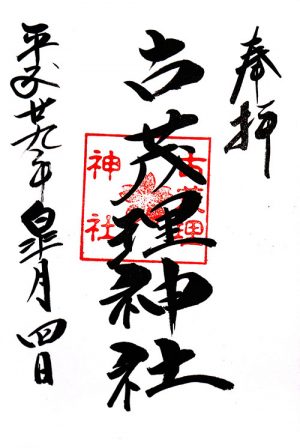 奉拝
古茂理神社
古茂理
神社
平成廿九年皐月四日